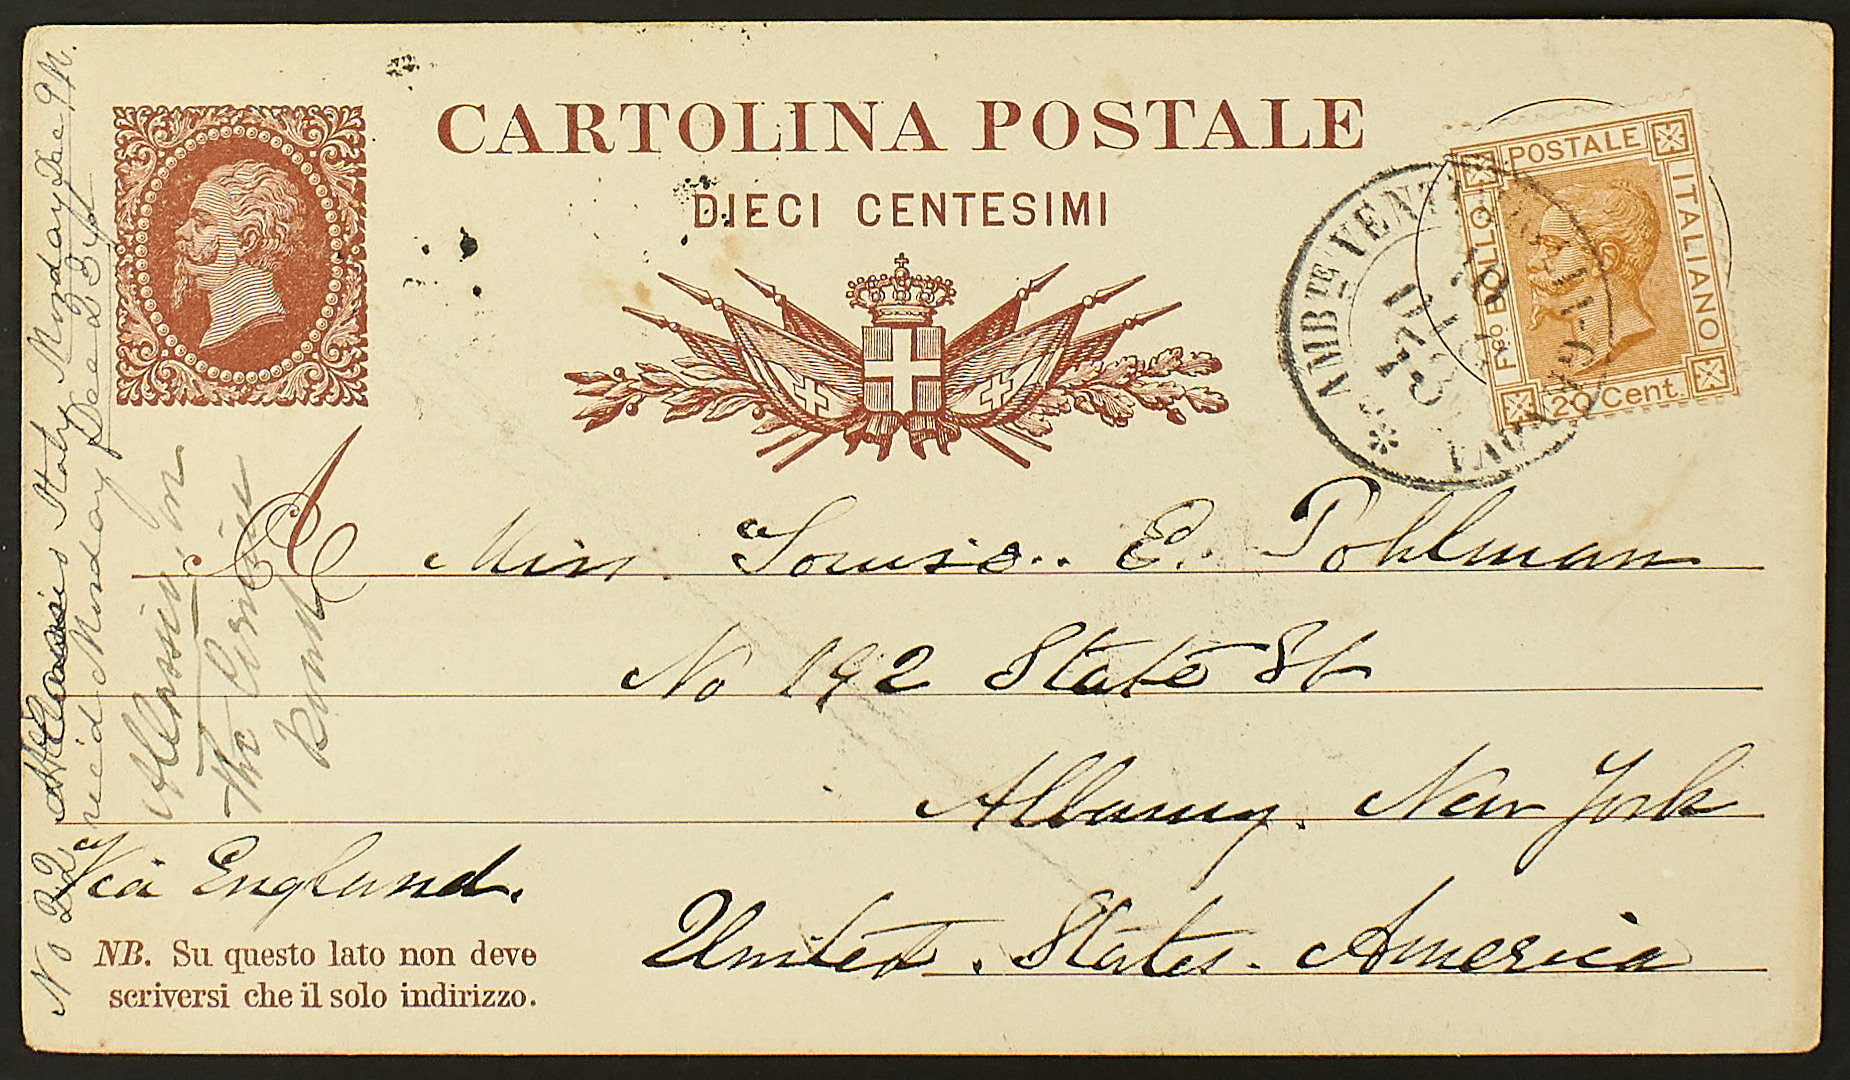 CARTOLINA POSTALE
DIECI CENTESIMI
POSTALE
ITALIANO
F.co BOLLO
20 Cent.
AMB.TE VENT
DEC
78
A Miss. Louise. E. Pohlman
No 192 State St
Albany. New York
United. States. America
Via England.
NB. Su questo lato non deve
scriversi che il solo indirizzo.
No 22 Italy Monday Dec 9th.
rec'd Monday Dec 23d
Alassio, on
the Cornice
Road